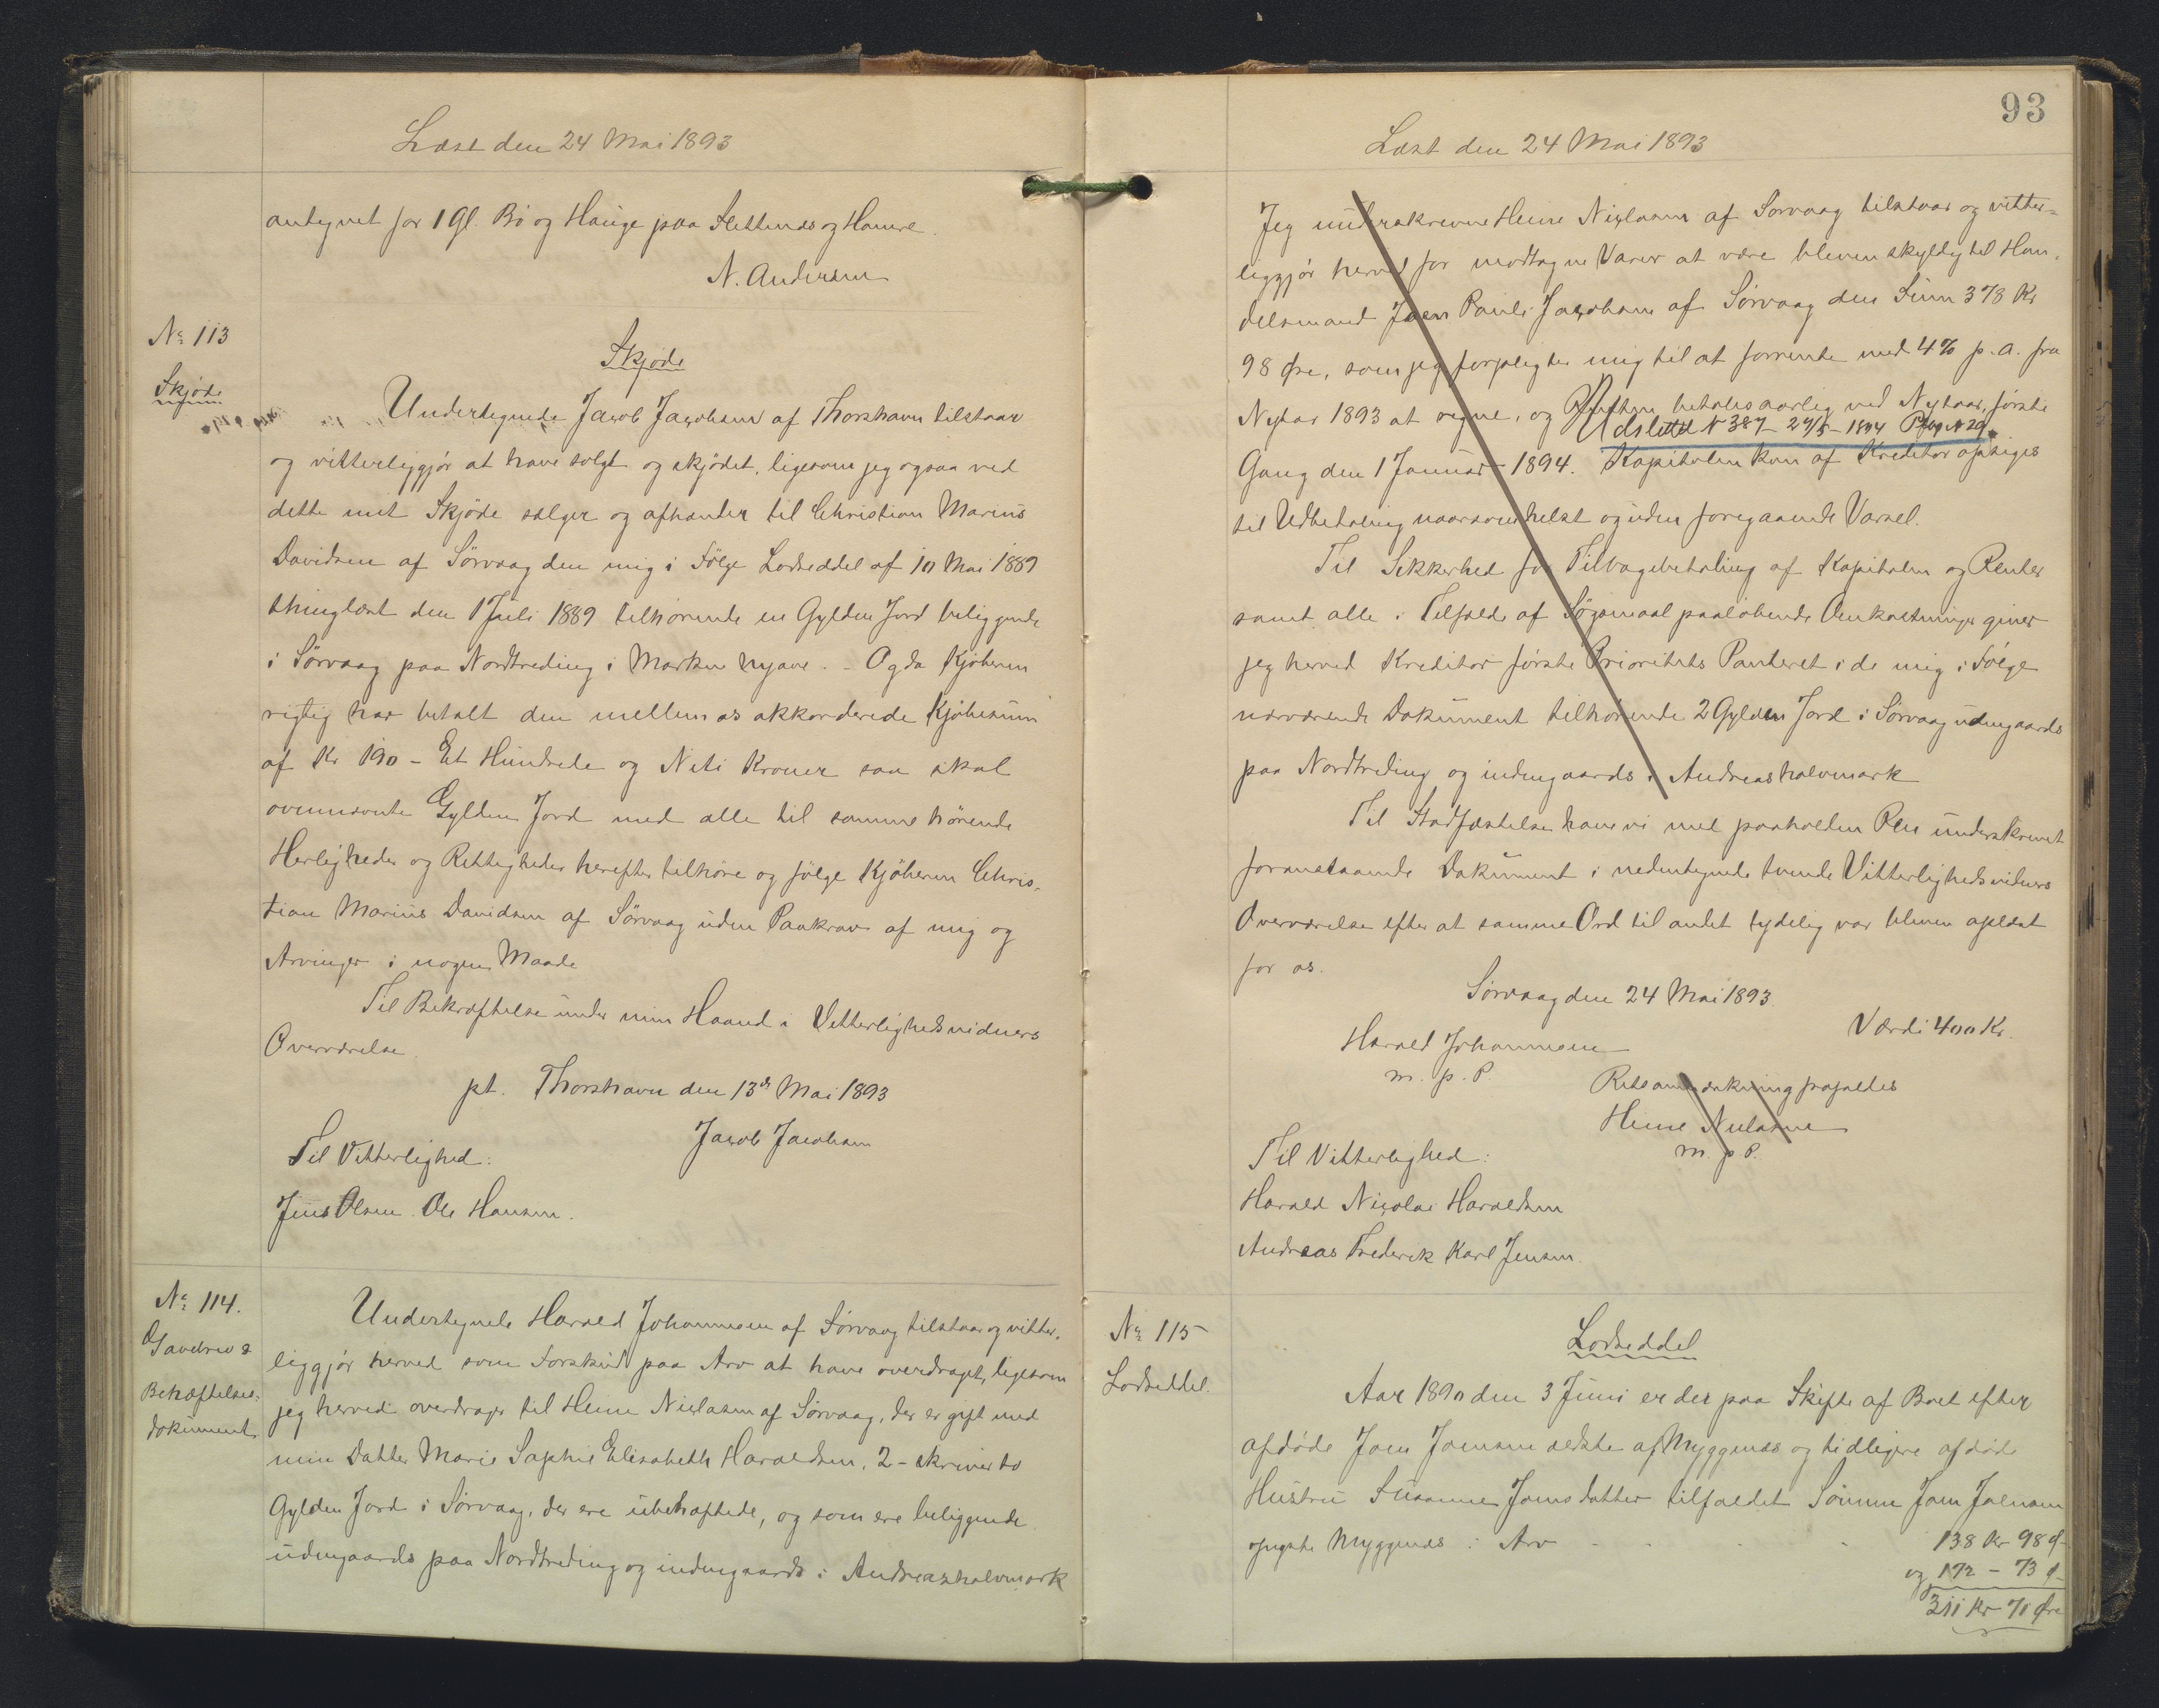 Læst den 24 Mai 1893
antegnet for 1 Gl. Bø og Hauge paa Slettenæs og Hamre.
N. Andersen
No 113
Skjøde
Skjøde
Undertegnede Jacob Jacobsen af Thorshavn tilstaar
og vitterliggjør at have solgt og skjødet, ligesom jeg ogsaa ved
dette mit Skjøde sælger og afhænder til Christian Marius
Davidsen af Sørvaag den mig i Følge Lodseddel af 10 Mai 1889
thinglæst den 1 Juli 1889 tilhørende en Gylden Jord beliggende
i Sørvaag paa Nordtreding i Marken . - Og da Kjøberen
rigtig har betalt den mellem os akkorderede Kjøbesum
af Kr 190 - Et Hundrede og Niti Kroner saa skal
ovennævnte Gylden Jord med alle til samme hørende
Herligheder og Rettigheder herefter tilhøre og følge Kjøberen Chris-
tian Marius Davidsen af Sørvaag uden Paakrav af mig og
Arvinger i nogen Maade
Til Bekræftelse under min Haand i Vitterlighedsvidners
Overværelse.
pt. Thorshavn den 13de Mai 1893
Jacob Jacobsen
Til Vitterlighed:
Jens Olsen. Ole Hansen.
No 114.
Gavebrev &
Behæftelses-
dokument
Undertegnede Harald Johannesen af Sørvaag tilstaar og vitter-
liggjør herved som Forskud paa Arv at have overdraget, ligesom
jeg herved overdrager til Heine Niclasen af Sørvaag, der er gift med
min Datter Marie Sophie Elisabeth Haraldsen, 2 - skriver to
Gylden Jord i Sørvaag, der ere ubehæftede, og som ere beliggende
udengaards paa Nordtreding og indengaards i Andreashalvmark
93
Læst den 24 Mai 1893
Jeg underskrevne Heine Niclasen af Sørvaag tilstaar og vitter-
liggjør herved for modtagne Varer at være bleven skyldig til Han-
delsmand Joen Pauli Jacobsen af Sørvaag den Sum 378 Kr
98 Øre, som jeg forpligter mig til at forrente med 4% p.a. fra
Nytaar 1893 at regne, og Renten betales aarlig ved Nytaar, første
Udslettet No 387 - 27/5 - 1894
Gang den 1 Januar 1894. Kapitalen kan af Kreditor opsiges
til Udbetaling naarsomhelst og uden foregaaende Varsel.
Til Sikkerhed for Tilbagebetaling af Kapitalen og Renter
samt alle i Tilfælde af Søgsmaal paaløbende Omkostninger giver
jeg herved Kreditor første Prioritets Panteret i de mig i Følge
nærværende Dokument tilhørende 2 Gylden Jord i Sørvaag udengaards
paa Nordtreding og indengaards i Andreashalvmark
Til Stadfæstelse have vi med paaholden Pen underskrevet
foranstaaende Dokument i nedentegnede tvende Vitterlighedsvidners
Overværelse efter at samme Ord til andet tydelig var bleven oplæst
for os.
Sørvaag den 24 Mai 1893.
Værdi 400 Kr.
Harald Johannesen
m. p. P.
Retsanmærkning frafaldes
Heine Niclasen
m. p. P.
Til Vitterlighed:
Harald Nicolai Haraldsen
Andreas Frederik Karl Jensen.
No 115
Lodseddel.
Lodseddel
Aar 1890 den 3 Juni er der paa Skifte af Boet efter
afdøde Joen Joensen ældste af Myggenæs og tidligere afdøde
Hustru Susanne Joensdatter tilfaldet Sønnen Joen Joensen
yngste Myggenæs i Arv . . . 138 Kr 98 Ø
og 172 - 73 Ø
311 Kr 71 Øre